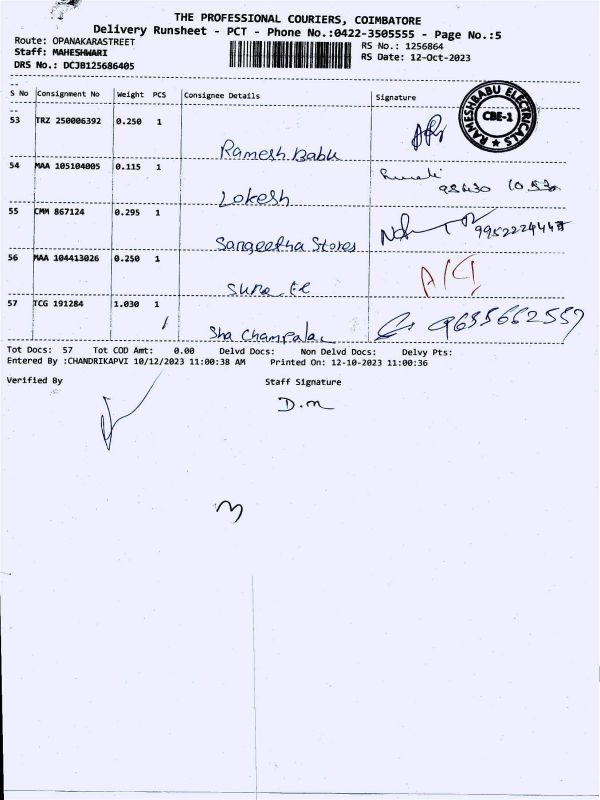 THE PROFESSIONAL COURIERS, COIMBATORE
Delivery Runsheet - PCT - Phone No.:0422-3505555 - Page No.:5
Route: OPANAKARASTREET
RS No.: 1256864
Staff: MAHESHWARI
RS Date: 12-Oct-2023
DRS No.: DCJB125686405
S No Consignment No Weight PCS Consignee Details Signature
RAMESHBABU ELECTRICALS
CBE-1
53 TRZ 250006392 0.250 1
Ramesh Babu
54 MAA 105104005 0.115 1
Lokesh
55 CMM 867124 0.295 1
9952224447
Sangeetha Stores
56 MAA 104413026 0.250 1
57 TCG 191284 1.030 1
9655662557
Sha Champalal
Tot Docs: 57 Tot COD Amt: 0.00 Delvd Docs: Non Delvd Docs: Delvy Pts:
Entered By :CHANDRIKAPVI 10/12/2023 11:00:38 AM Printed On: 12-10-2023 11:00:36
Verified By Staff Signature
D.m